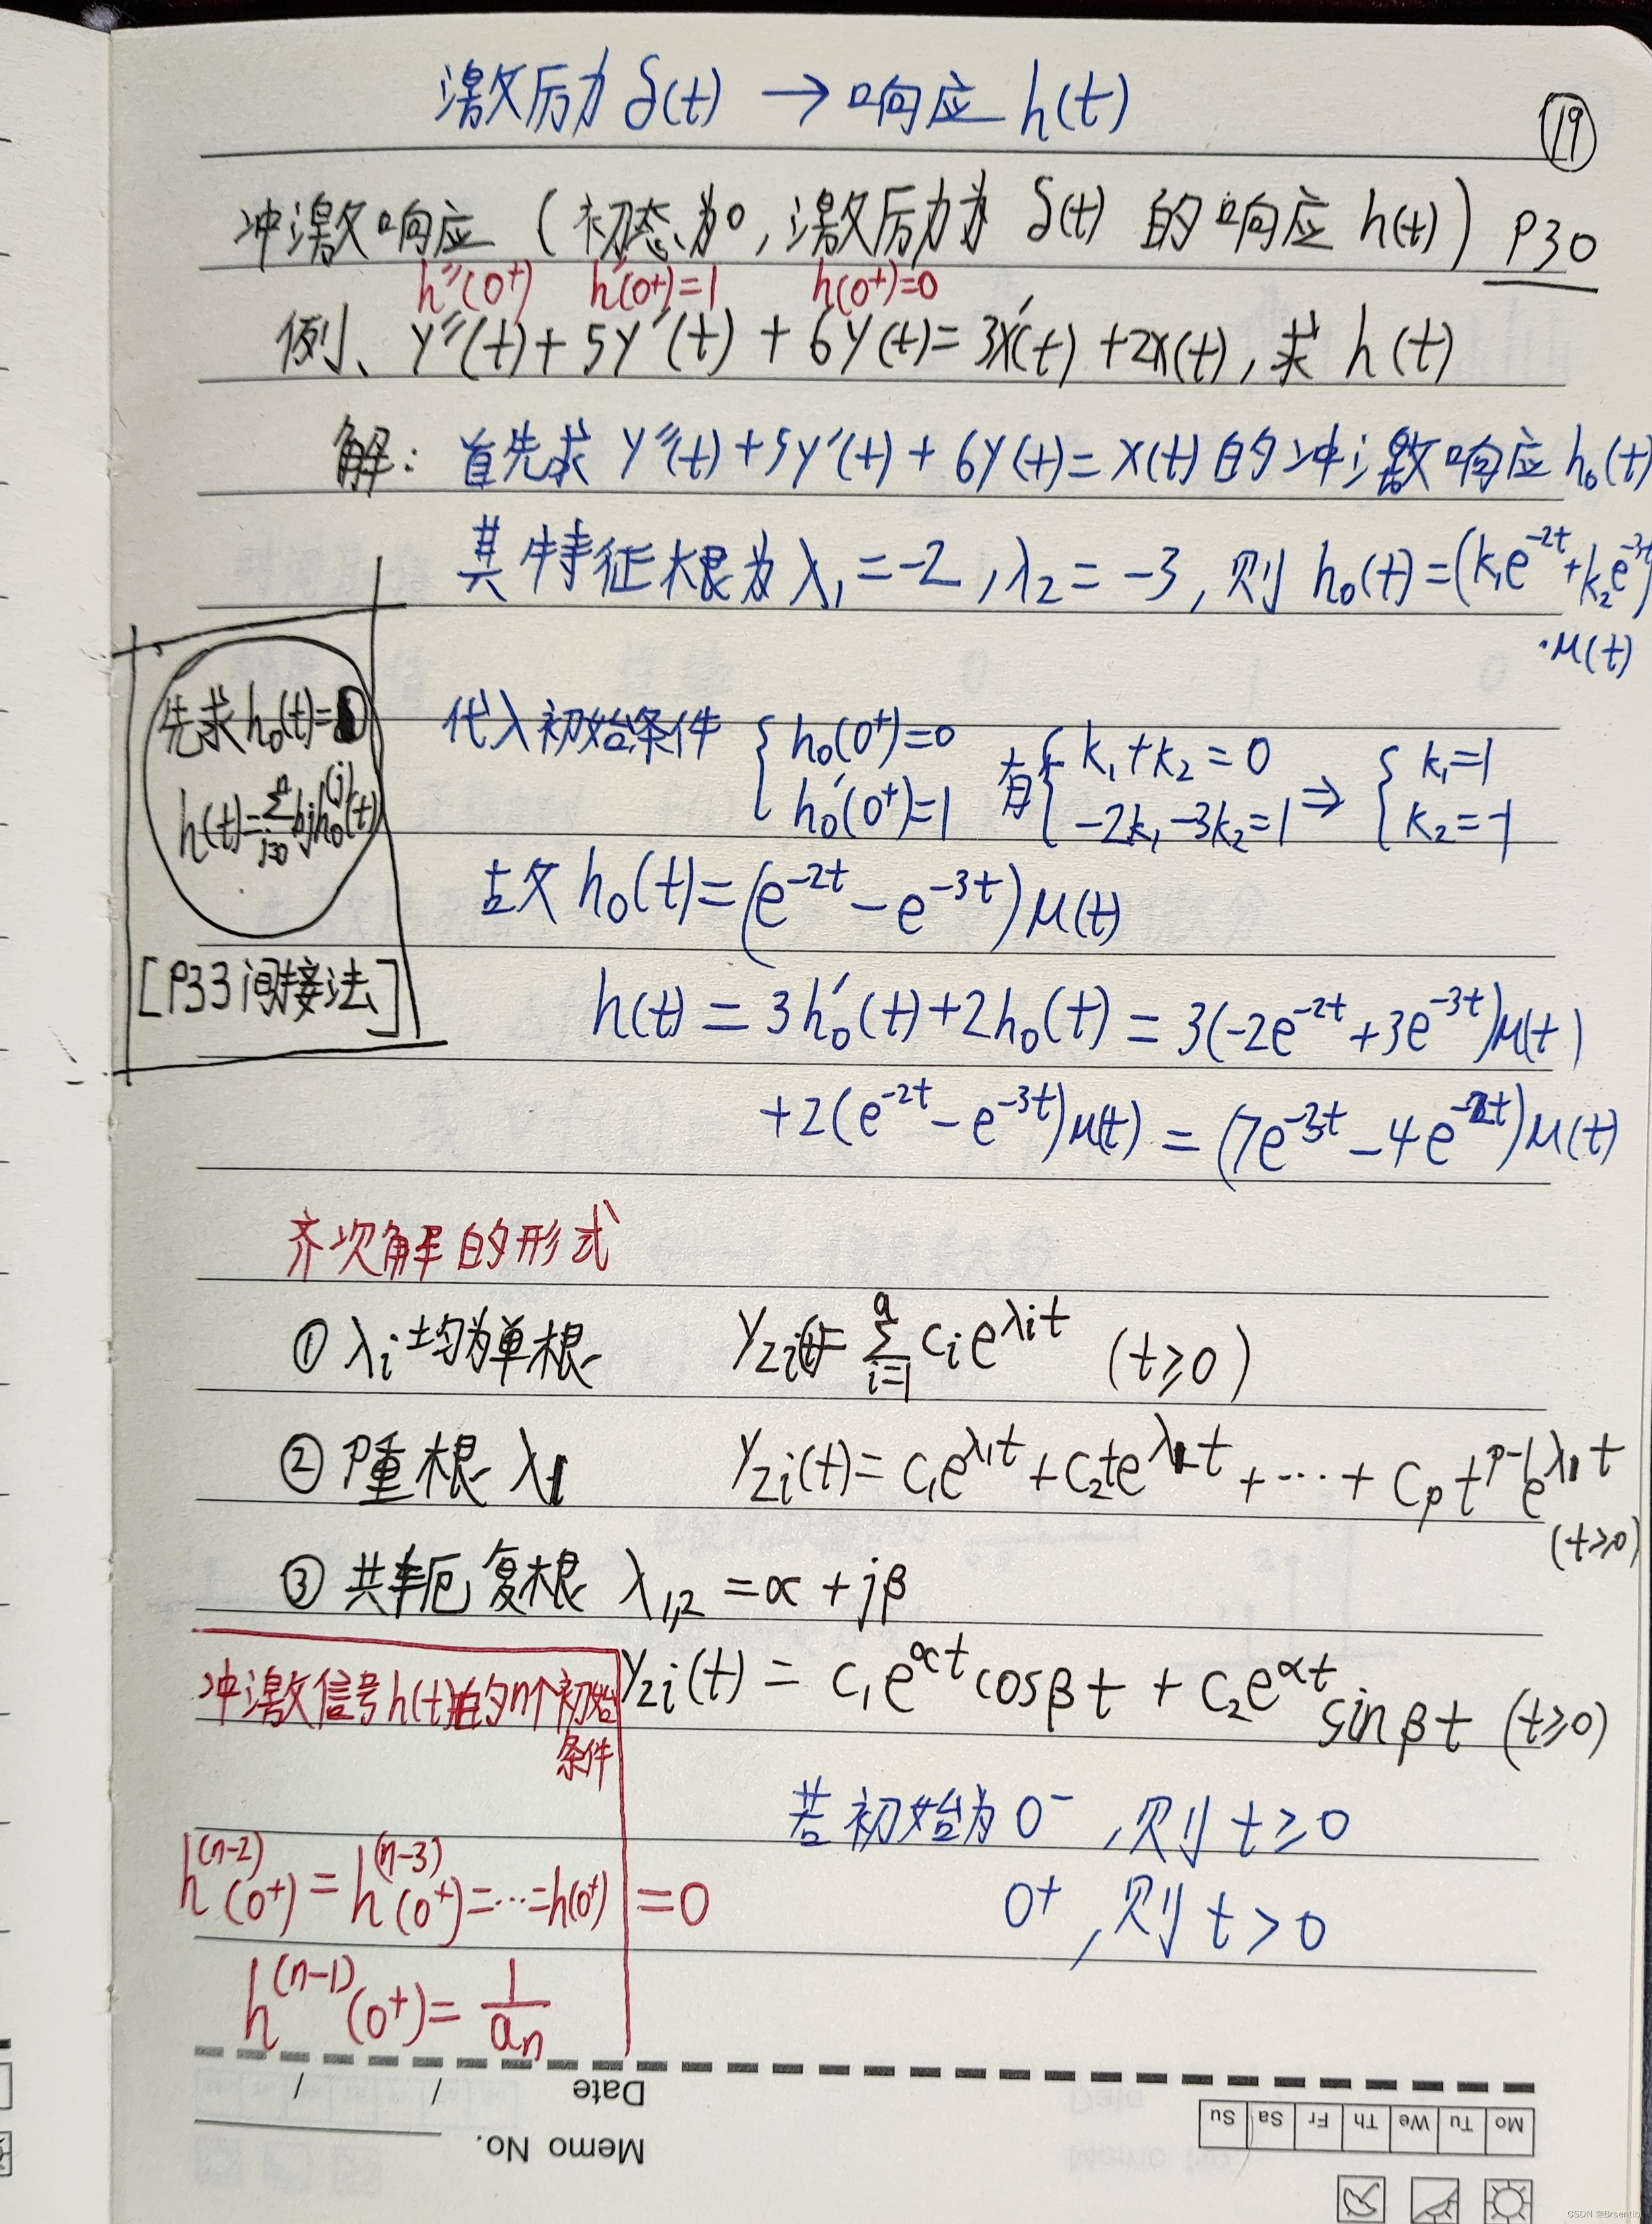 激励 δ(t) → 响应 h(t)
⑲
冲激响应 (初态为0, 激励为 δ(t) 的响应 h(t)) P30
h''(0⁺) h'(0⁺)=1 h(0⁺)=0
例、y''(t)+5y'(t)+6y(t)=3x'(t)+2x(t), 求 h(t)
解: 首先求 y''(t)+5y'(t)+6y(t)=x(t) 的冲激响应 h₀(t)
其特征根为 λ₁=-2, λ₂=-3, 则 h₀(t)=(k₁e^{-2t}+k₂e^{-3t})
·μ(t)
先求 h₀(t)=
h(t)=∑_{j=0}^{n} bⱼh₀^{(j)}(t)
[P33 间接法]
代入初始条件 { h₀(0⁺)=0 有 { k₁+k₂=0 ⇒ { k₁=1
h₀'(0⁺)=1 -2k₁-3k₂=1 k₂=-1
故 h₀(t)=(e^{-2t}-e^{-3t})μ(t)
h(t)=3h₀'(t)+2h₀(t)=3(-2e^{-2t}+3e^{-3t})μ(t)
+2(e^{-2t}-e^{-3t})μ(t)=(7e^{-3t}-4e^{-2t})μ(t)
齐次解的形式
① λᵢ均为单根 y_{zi}(t)=∑_{i=1}^{n} cᵢe^{λᵢt} (t≥0)
② P重根 λ₁ y_{zi}(t)=c₁e^{λ₁t}+c₂te^{λ₁t}+…+c_p t^{p-1}e^{λ₁t}
(t≥0)
③ 共轭复根 λ_{1,2}=α+jβ
y_{zi}(t)=c₁e^{αt}cosβt+c₂e^{αt}sinβt (t≥0)
冲激信号h(t)的n个初始
条件
若初始为0⁻, 则 t≥0
h^{(n-2)}(0⁺)=h^{(n-3)}(0⁺)=…=h(0⁺)=0
0⁺, 则 t>0
h^{(n-1)}(0⁺)=1/aₙ
Date / /
Memo No.
Mo Tu We Th Fr Sa Su
CSDN @Brsentib